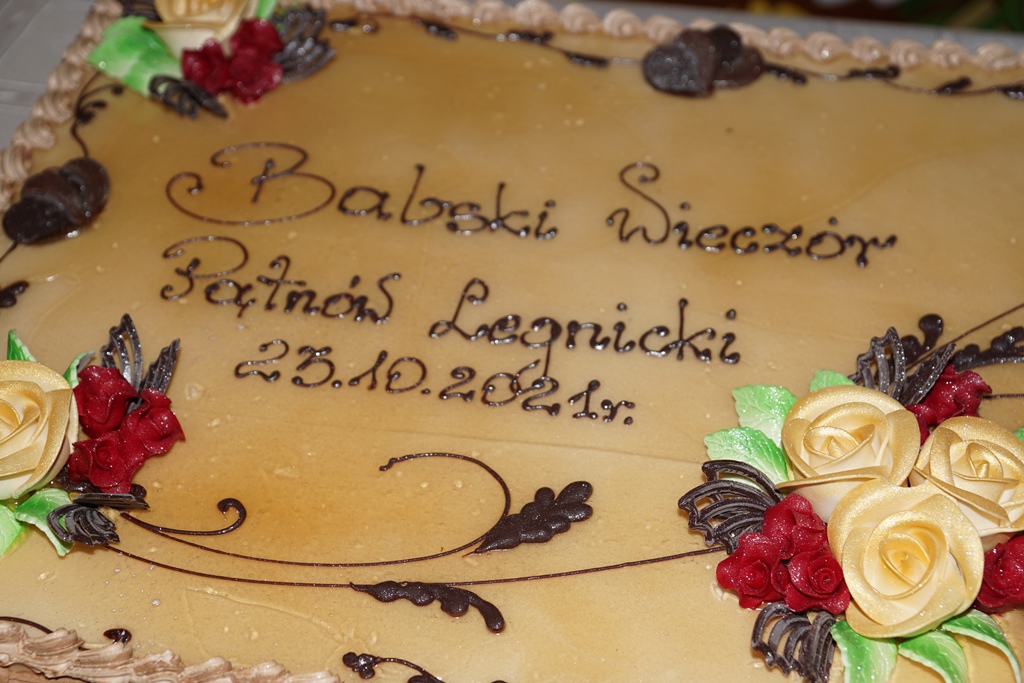 Babski Wieczór
Pątnów Legnicki
23.10.2021r.